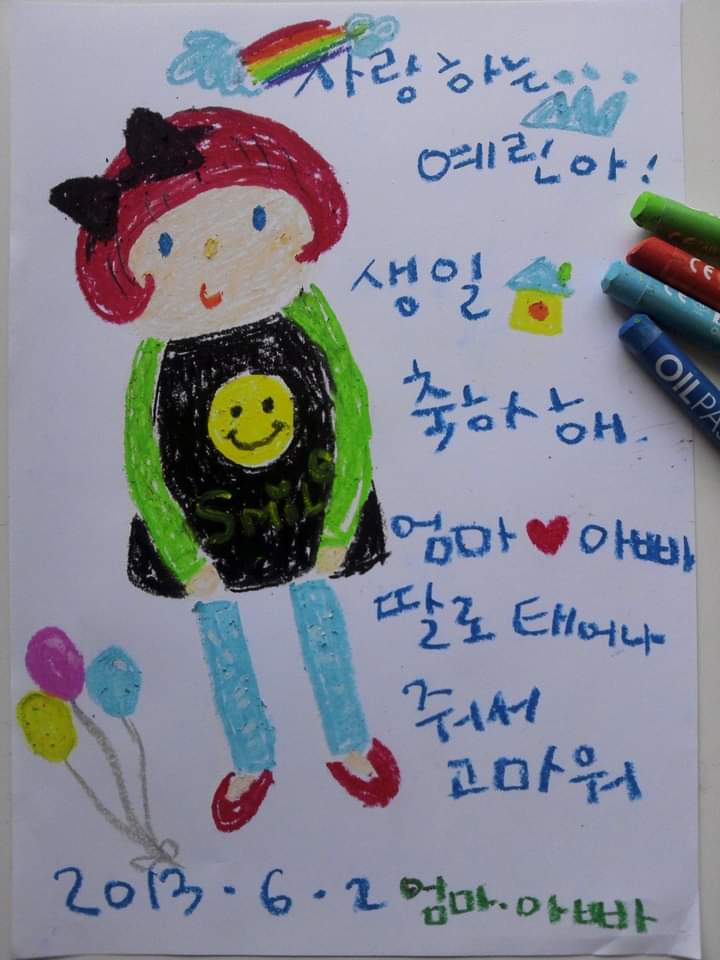 사랑하는
예린아!
생일
축하상해.
엄마 아빠
SMiLe
딸로 태어나
줘서
고마워
2013.6.2 엄마.아빠
OILPAS